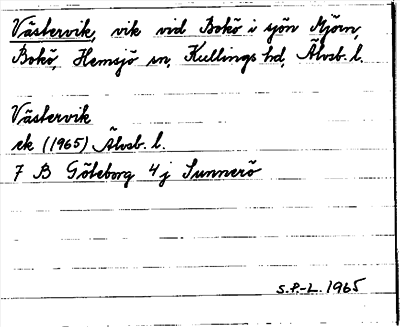 Västervik, vik vid Bokö i sjön Mjörn,
Bokö, Hemsjö sn, Kullings hd, Älvsb. l.
Västervik
ek (1965) Älvsb. l.
7 B Göteborg 4 j Sunnerö
S.P-L. 1965